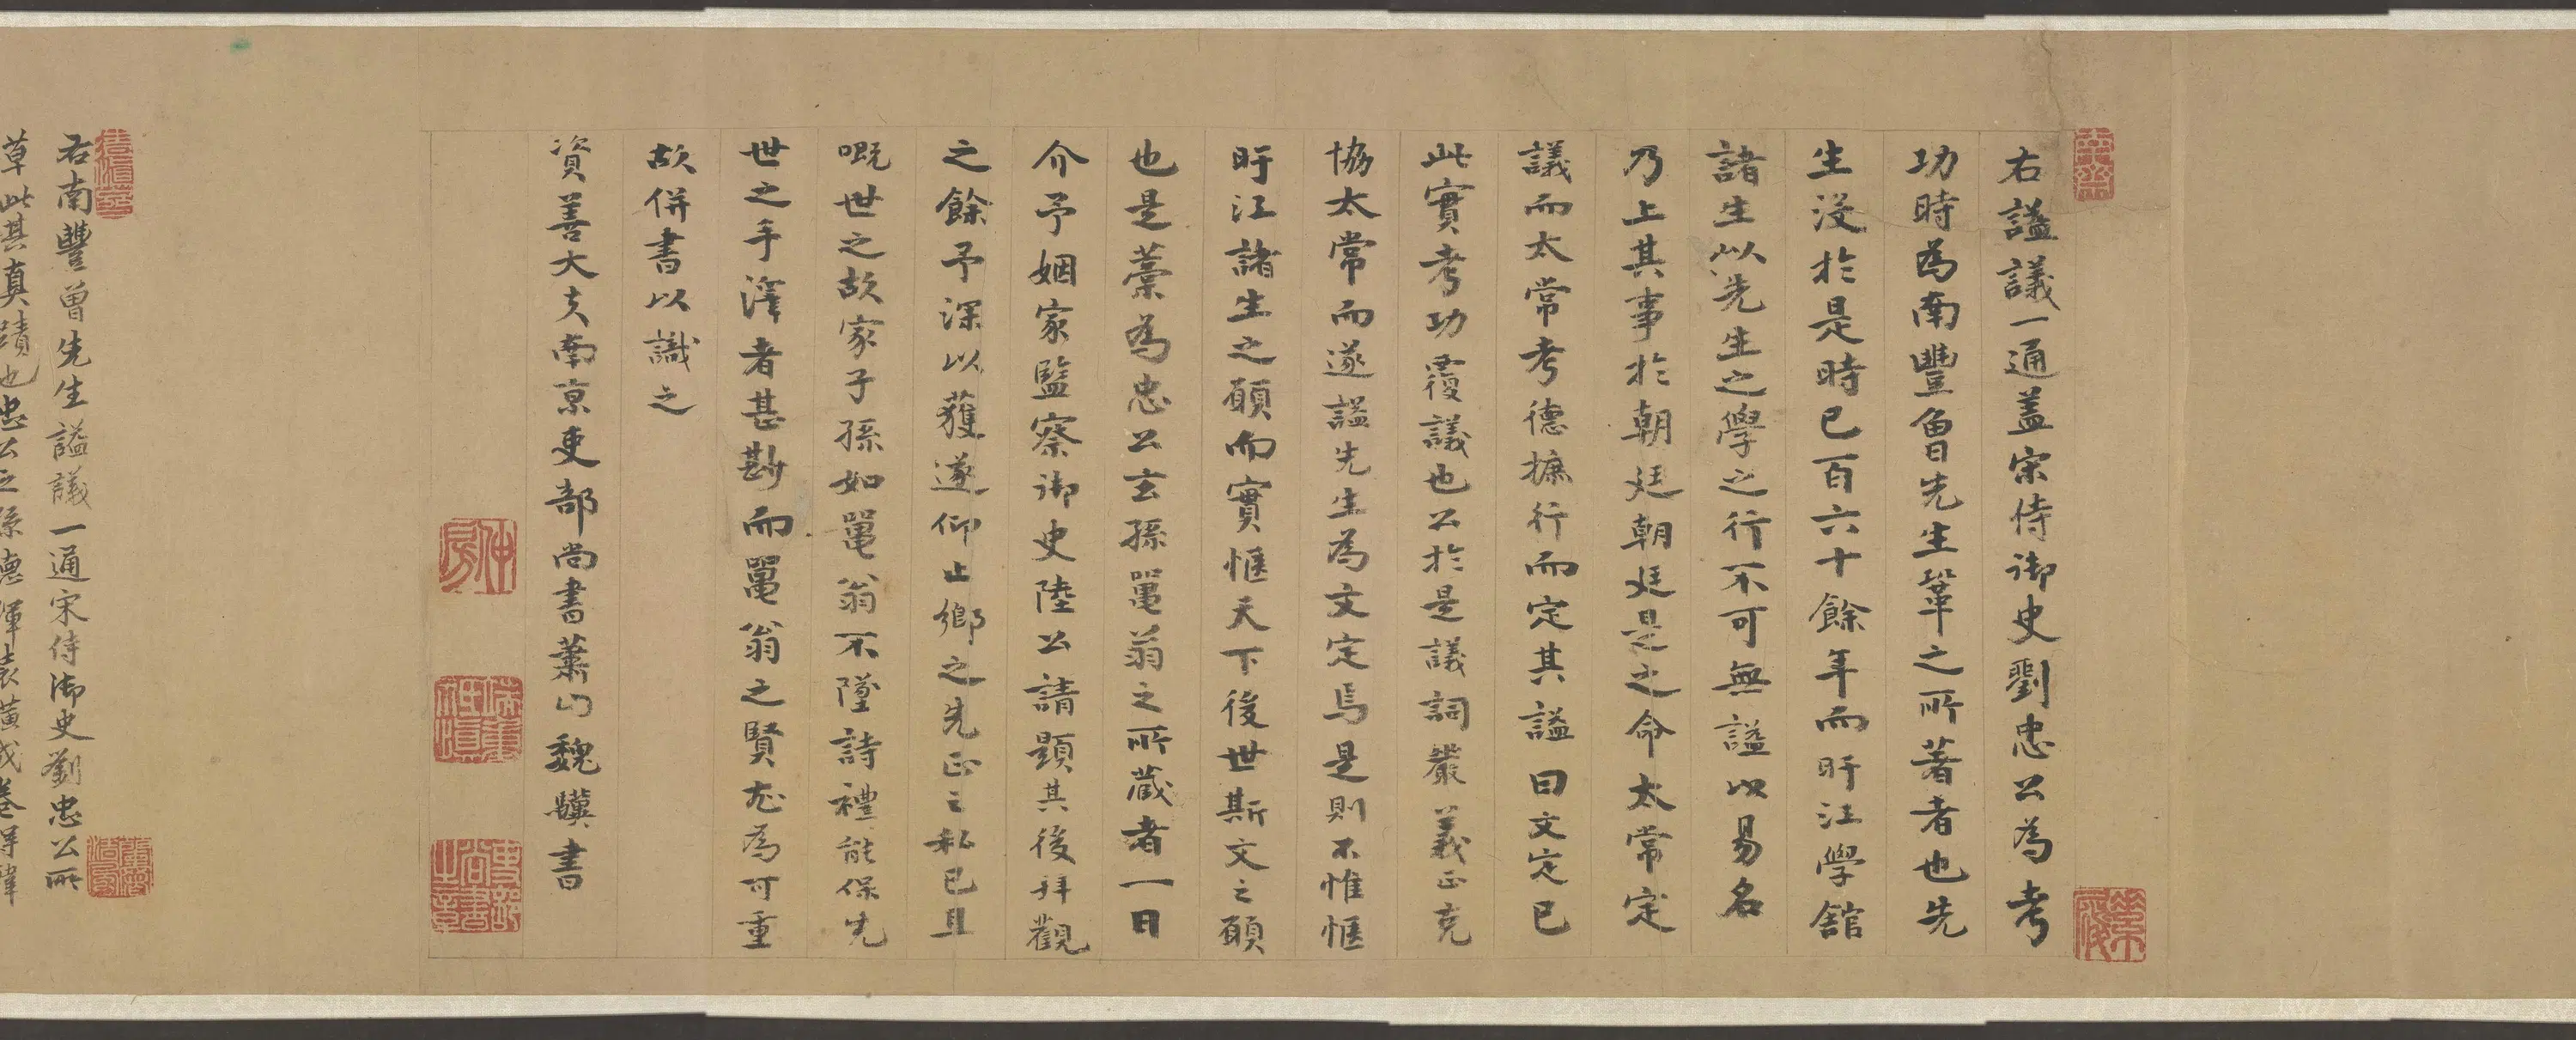 右謚議一通蓋宋侍御史劉忠公為考
功時為南豐曾先生鞏之所著者也先
生沒於是時已百六十餘年而盱江學舘
諸生以先生之學之行不可無謚以易名
乃上其事於朝廷朝廷是之命太常定
議而太常考德據行而定其謚曰文定已
此實考功覆議也公於是議詞嚴義正克
協太常而遂謚先生為文定焉是則不惟愜
盱江諸生之願而實愜天下後世斯文之願
也是藁為忠公玄孫鼂翁之所藏者一日
介予姻家監察御史陸公請題其後拜觀
之餘予深以獲遂仰止鄉之先正之私已且
嘅世之故家子孫如鼂翁不墜詩禮能保先
世之手澤者甚尠而鼂翁之賢尤為可重
故併書以識之
資善大夫南京吏部尚書蕭山魏驥書
仲房
吏部尚書之章
右南豐曾先生謚議一通宋侍御史劉忠公所
草此其真蹟也忠公之孫德渾裝潢成卷得